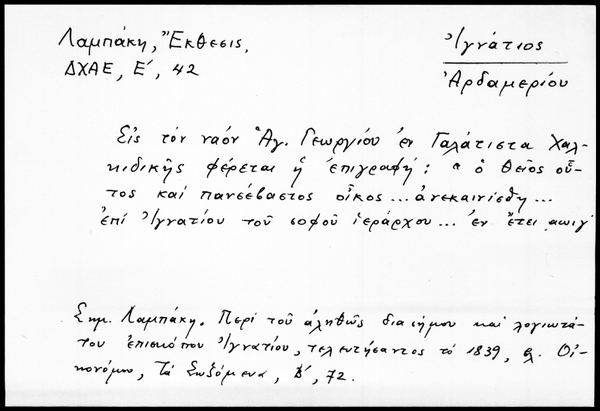 Λαμπάκη, Ἔκθεσις,
ΔΧΑΕ, Ε´, 42
Ἰγνάτιος
Ἀρδαμερίου
Εἰς τὸν ναὸν Ἁγ. Γεωργίου ἐν Γαλάτιστα Χαλ-
κιδικῆς φέρεται ἡ ἐπιγραφή: "ὁ θεῖος οὗ-
τος καὶ πανσέβαστος οἶκος... ἀνεκαινίσθη...
ἐπὶ Ἰγνατίου τοῦ σοφοῦ ἱεράρχου... ἐν ἔτει αωιγ´
Σημ. Λαμπάκη. Περὶ τοῦ ἀληθῶς διασήμου καὶ λογιωτά-
του ἐπισκόπου Ἰγνατίου, τελευτήσαντος τὸ 1839, Οἰ-
κονόμου, Τὰ Σωζόμενα, Β´, 72.